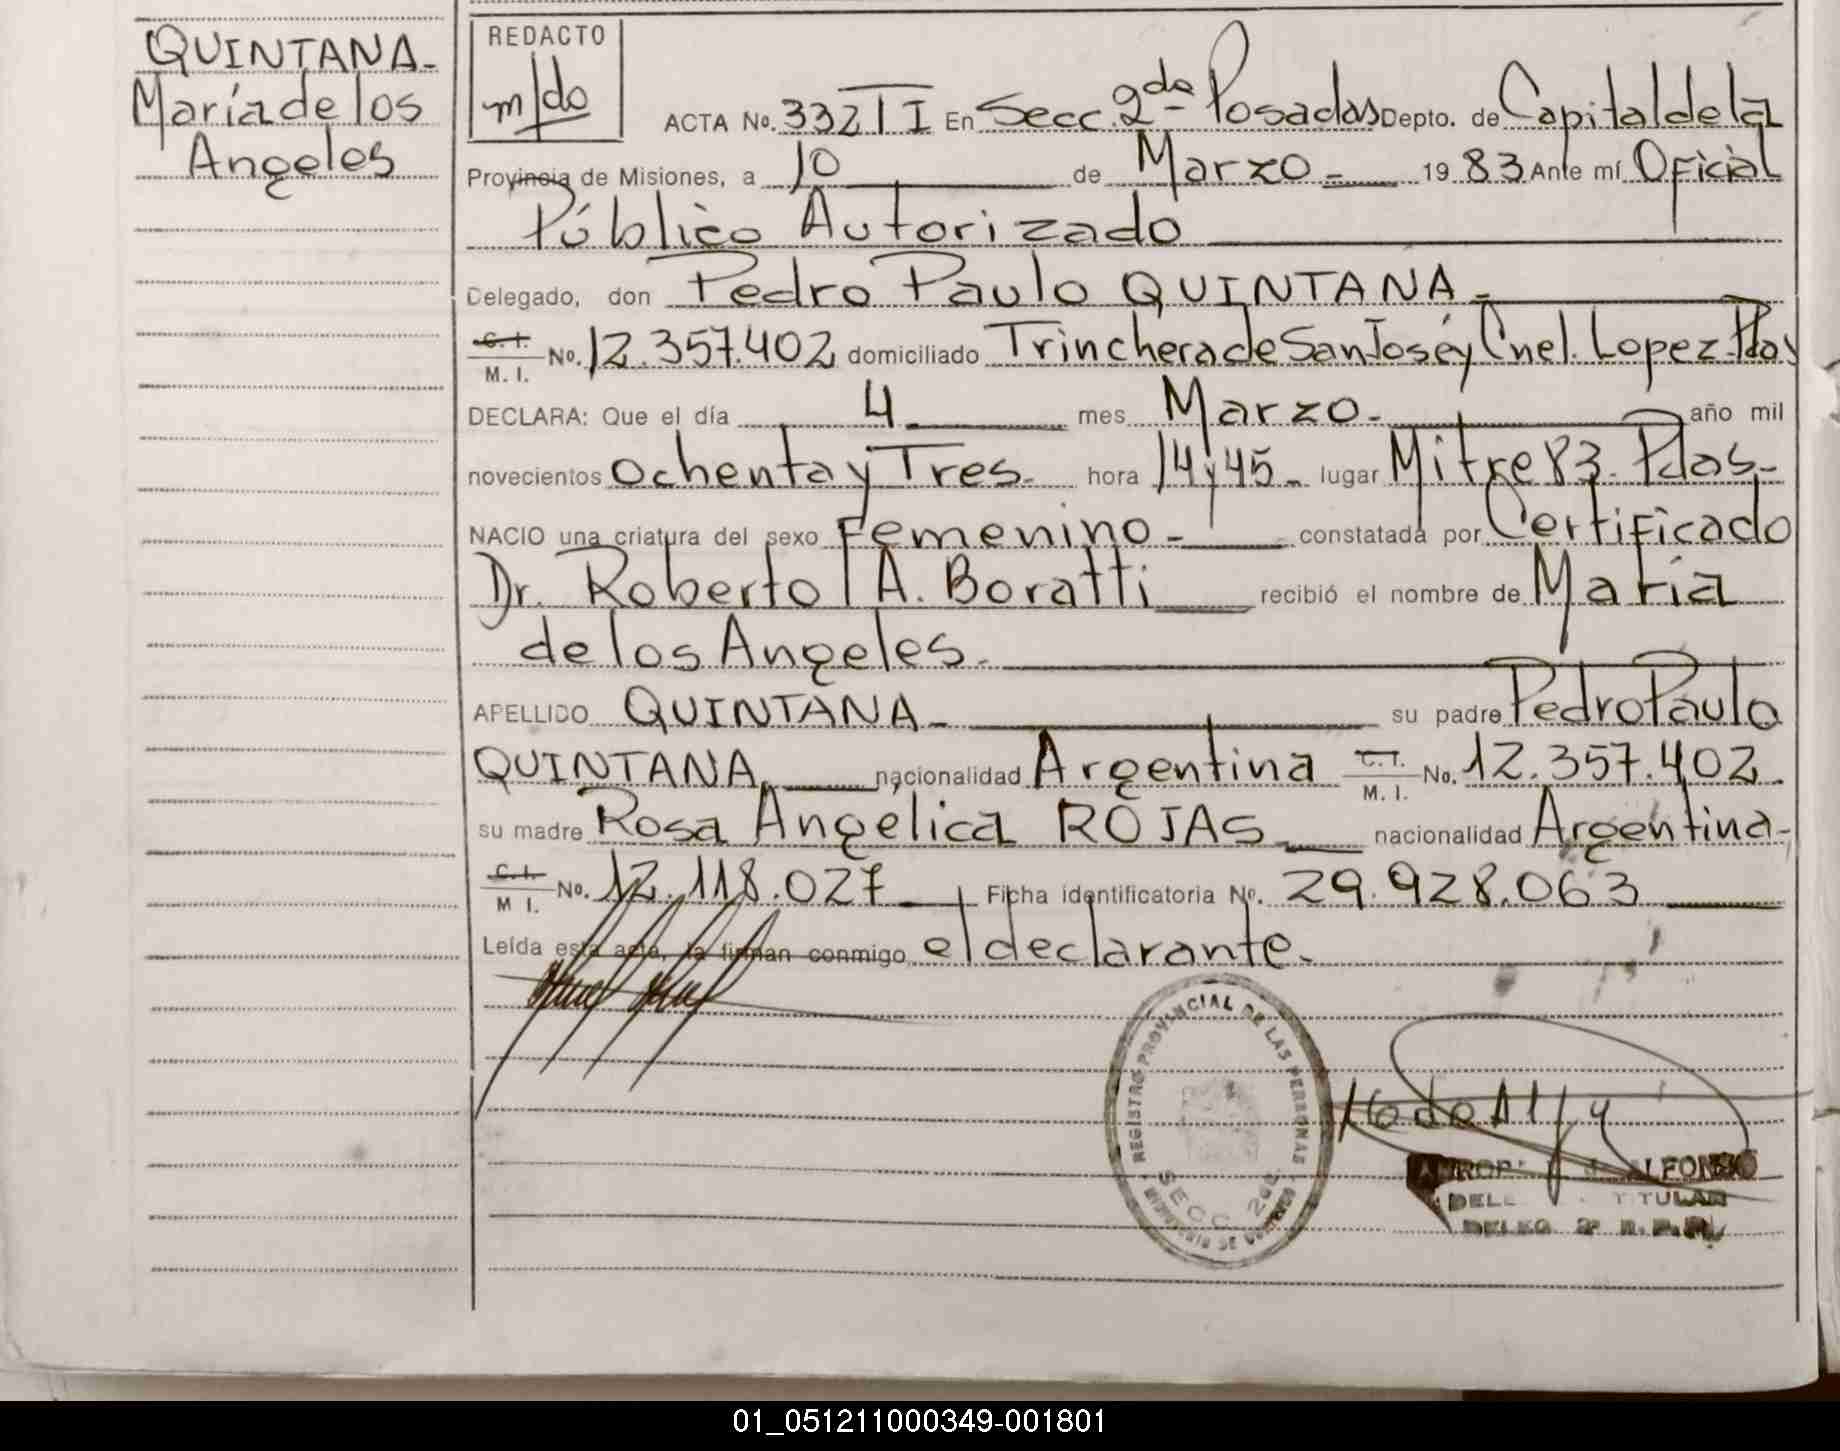 QUINTANA-
María de los
Angeles
REDACTO
m/do
ACTA No. 332 T I En Secc. 2da Posadas Depto. de Capital de la
Provincia de Misiones, a 10 de Marzo - 19 83 Ante mí Oficial
Público Autorizado
Delegado, don Pedro Paulo QUINTANA -
C. I.
M. I. No. 12.357.402 domiciliado Trinchera de San José y Cnel. Lopez-Pdas
DECLARA: Que el día 4 mes Marzo - año mil
novecientos ochenta y Tres - hora 14 y 45 - lugar Mitre 83 - Pdas -
NACIO una criatura del sexo Femenino - constatada por Certificado
Dr. Roberto A. Boratti recibió el nombre de María
de los Angeles -
APELLIDO QUINTANA - su padre Pedro Paulo
QUINTANA nacionalidad Argentina C. I.
M. I. No. 12.357.402
su madre Rosa Angelica ROJAS - nacionalidad Argentina -
C. I.
M I. No. 12.118.027 Ficha identificatoria No. 29.928.063
Leída esta acta, la firman conmigo el declarante -
REGISTRO PROVINCIAL DE LAS PERSONAS
SECC 2da
MINISTERIO DE GOBIERNO
ALFONSO
TITULAR
01_051211000349-001801